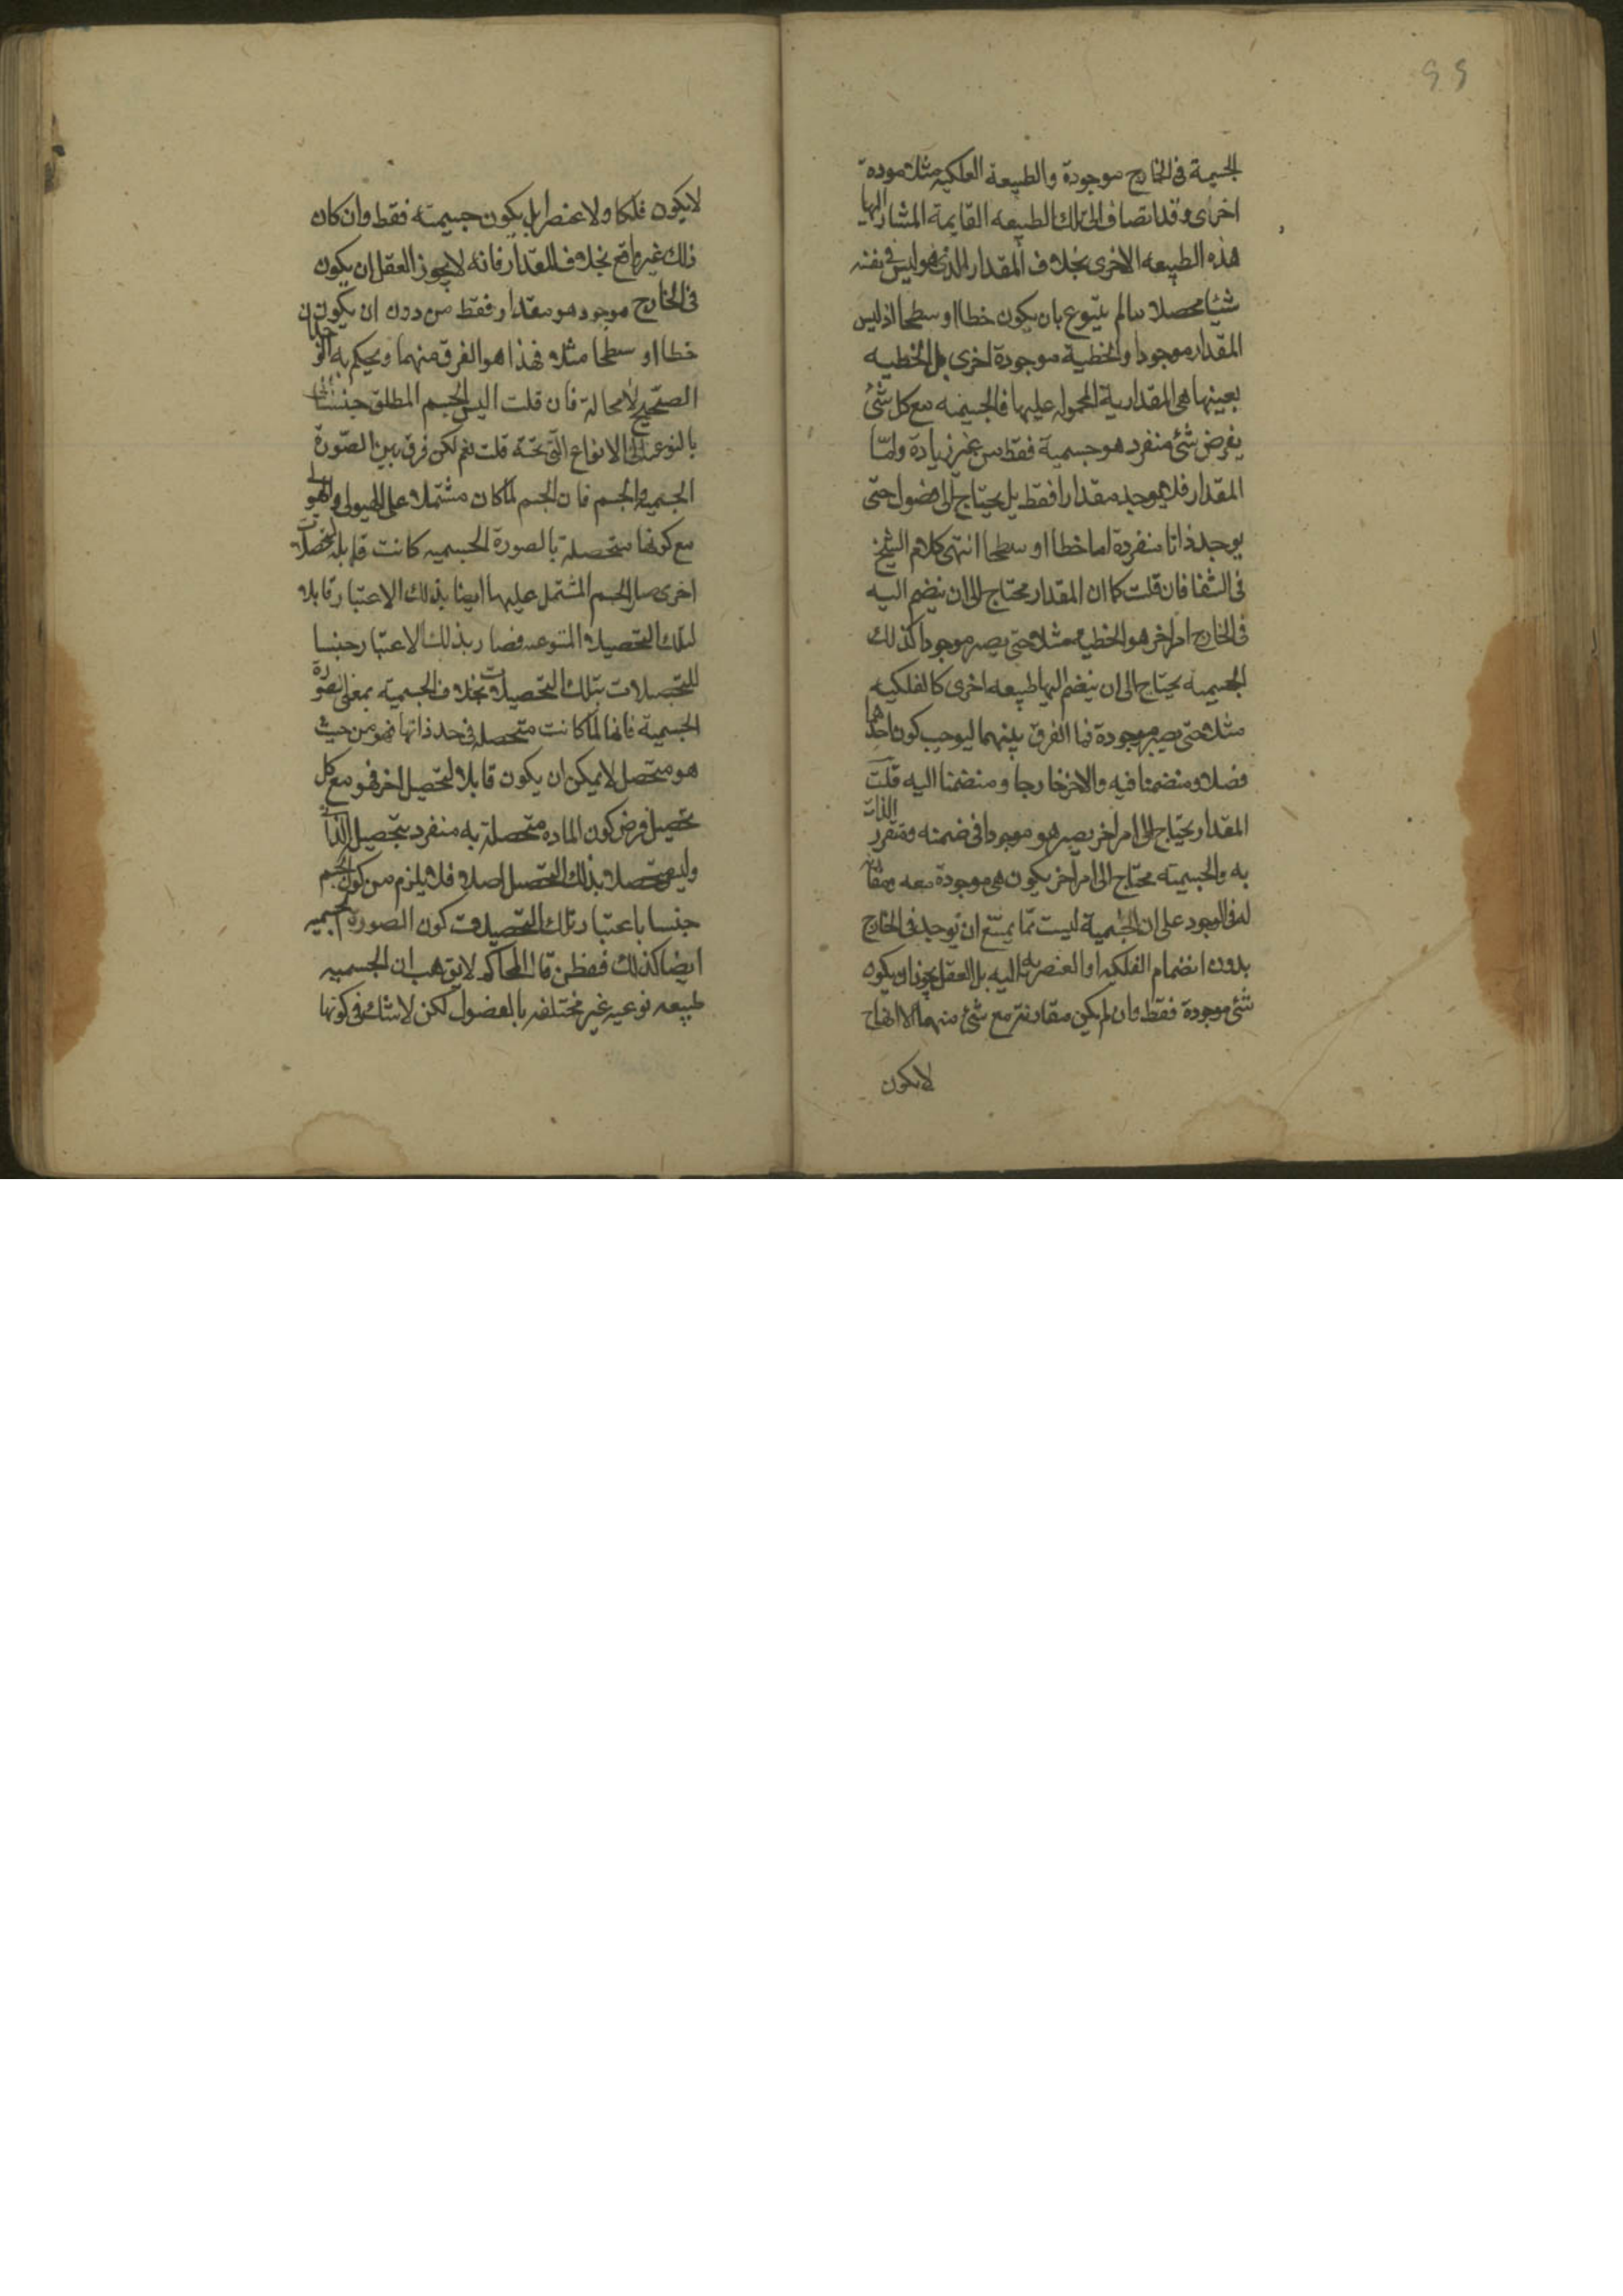 ٩٩
الجسمية فى الخارج موجودة والطبيعة الفلكيه مثلا موجودة
اخرى وقد انضاف الى تلك الطبيعه القايمة المشار اليها
هذه الطبيعه الاخرى بخلاف المقدار الذى هو ليس فى نفسه
شيئا محصلا مالم يتنوع بان يكون خطا او سطحا اذ ليس
المقدار موجودا والخطية موجودة اخرى بل الخطيه
بعينها هى المقدارية المحموله عليها فالجسميه مع كل شئ
يفرض شئ منفرد هو جسمية فقط من غير زيادة وامّا
المقدار فلا يوجد مقدارا فقط بل يحتاج الى فصول حتى
يوجد ذاتا منفردة اما خطا او سطحا انتهى كلام الشيخ
فى الشفا فان قلت كما ان المقدار محتاج الى ان ينضم اليه
فى الخارج امر اخر هو الخطية مثلا حتى يصير موجودا كذلك
الجسمية يحتاج الى ان ينضم اليها طبيعه اخرى كالفلكيه
مثلا حتى يصير موجودة فما الفرق بينهما ليوجب كون احدهما
فصلا ومنضمنا فيه والاخر خارجا ومنضمنا اليه قلت
المقدار يحتاج الى امر اخر يصير هو موجودا فى ضمنه ومتقرر الذات
به والجسميته محتاج الى امر اخر يكون هى موجودة معه ومقارنه
له فى الوجود على ان الجسمية ليست مما يمتنع ان توجد فى الخارج
بدون انضمام الفلكيه او العنصريه اليه بل العقل يجوز ان يكون
شئ موجودة فقط وان لم يكن مقارنته مع شئ منهما الا انها ح
لا يكون
لا يكون فلكا ولا عنصرا بل يكون جسميته فقط وان كان
ذلك غير واقع بخلاف المقدار فانه لا يجوز العقل ان يكون
فى الخارج موجود هو مقدار فقط من دون ان يكون
خطا او سطحا مثلا فهذا هو الفرق منهما ويحكم به
الصحيح لا محالة فان قلت اليس الجسم المطلق جنسا
بالنوع الى الانواع التى تحته قلت نعم لكن فرق بين الصّورة
الجسميه والجسم فان الجسم لما كان مشتملا على الهيولى والهيولى
مع كونها متحصلة بالصورة الجسميه كانت قابله لتحصلات
اخرى صار الجسم المشتمل عليها ايضا بذلك الاعتبار قابلا
لتلك التحصيلات المتنوعه فصار بذلك الاعتبار جنسا
للتحصلات بتلك التحصيلات بخلاف الجسمية بمعنى الصورة
الجسمية فانها لما كانت متحصله فى حد ذاتها فهو من حيث
هو متحصل لا يمكن ان يكون قابلا لتحصيل اخر فهو مع كل
تحصيل فرض كون الماده متحصلة به منفرد بتحصيل الذات
وليس متحصلا بذلك التحصيل اصلا فلا يلزم من كون الجسم
جنسا باعتبار تلك التحصيلات كون الصورة الجسميه
ايضا كذلك فقط من قال المحاكم لا يق هب ان الجسميه
طبيعه نوعيه غير مختلفه بالفصول لكن لا شك فى كونها